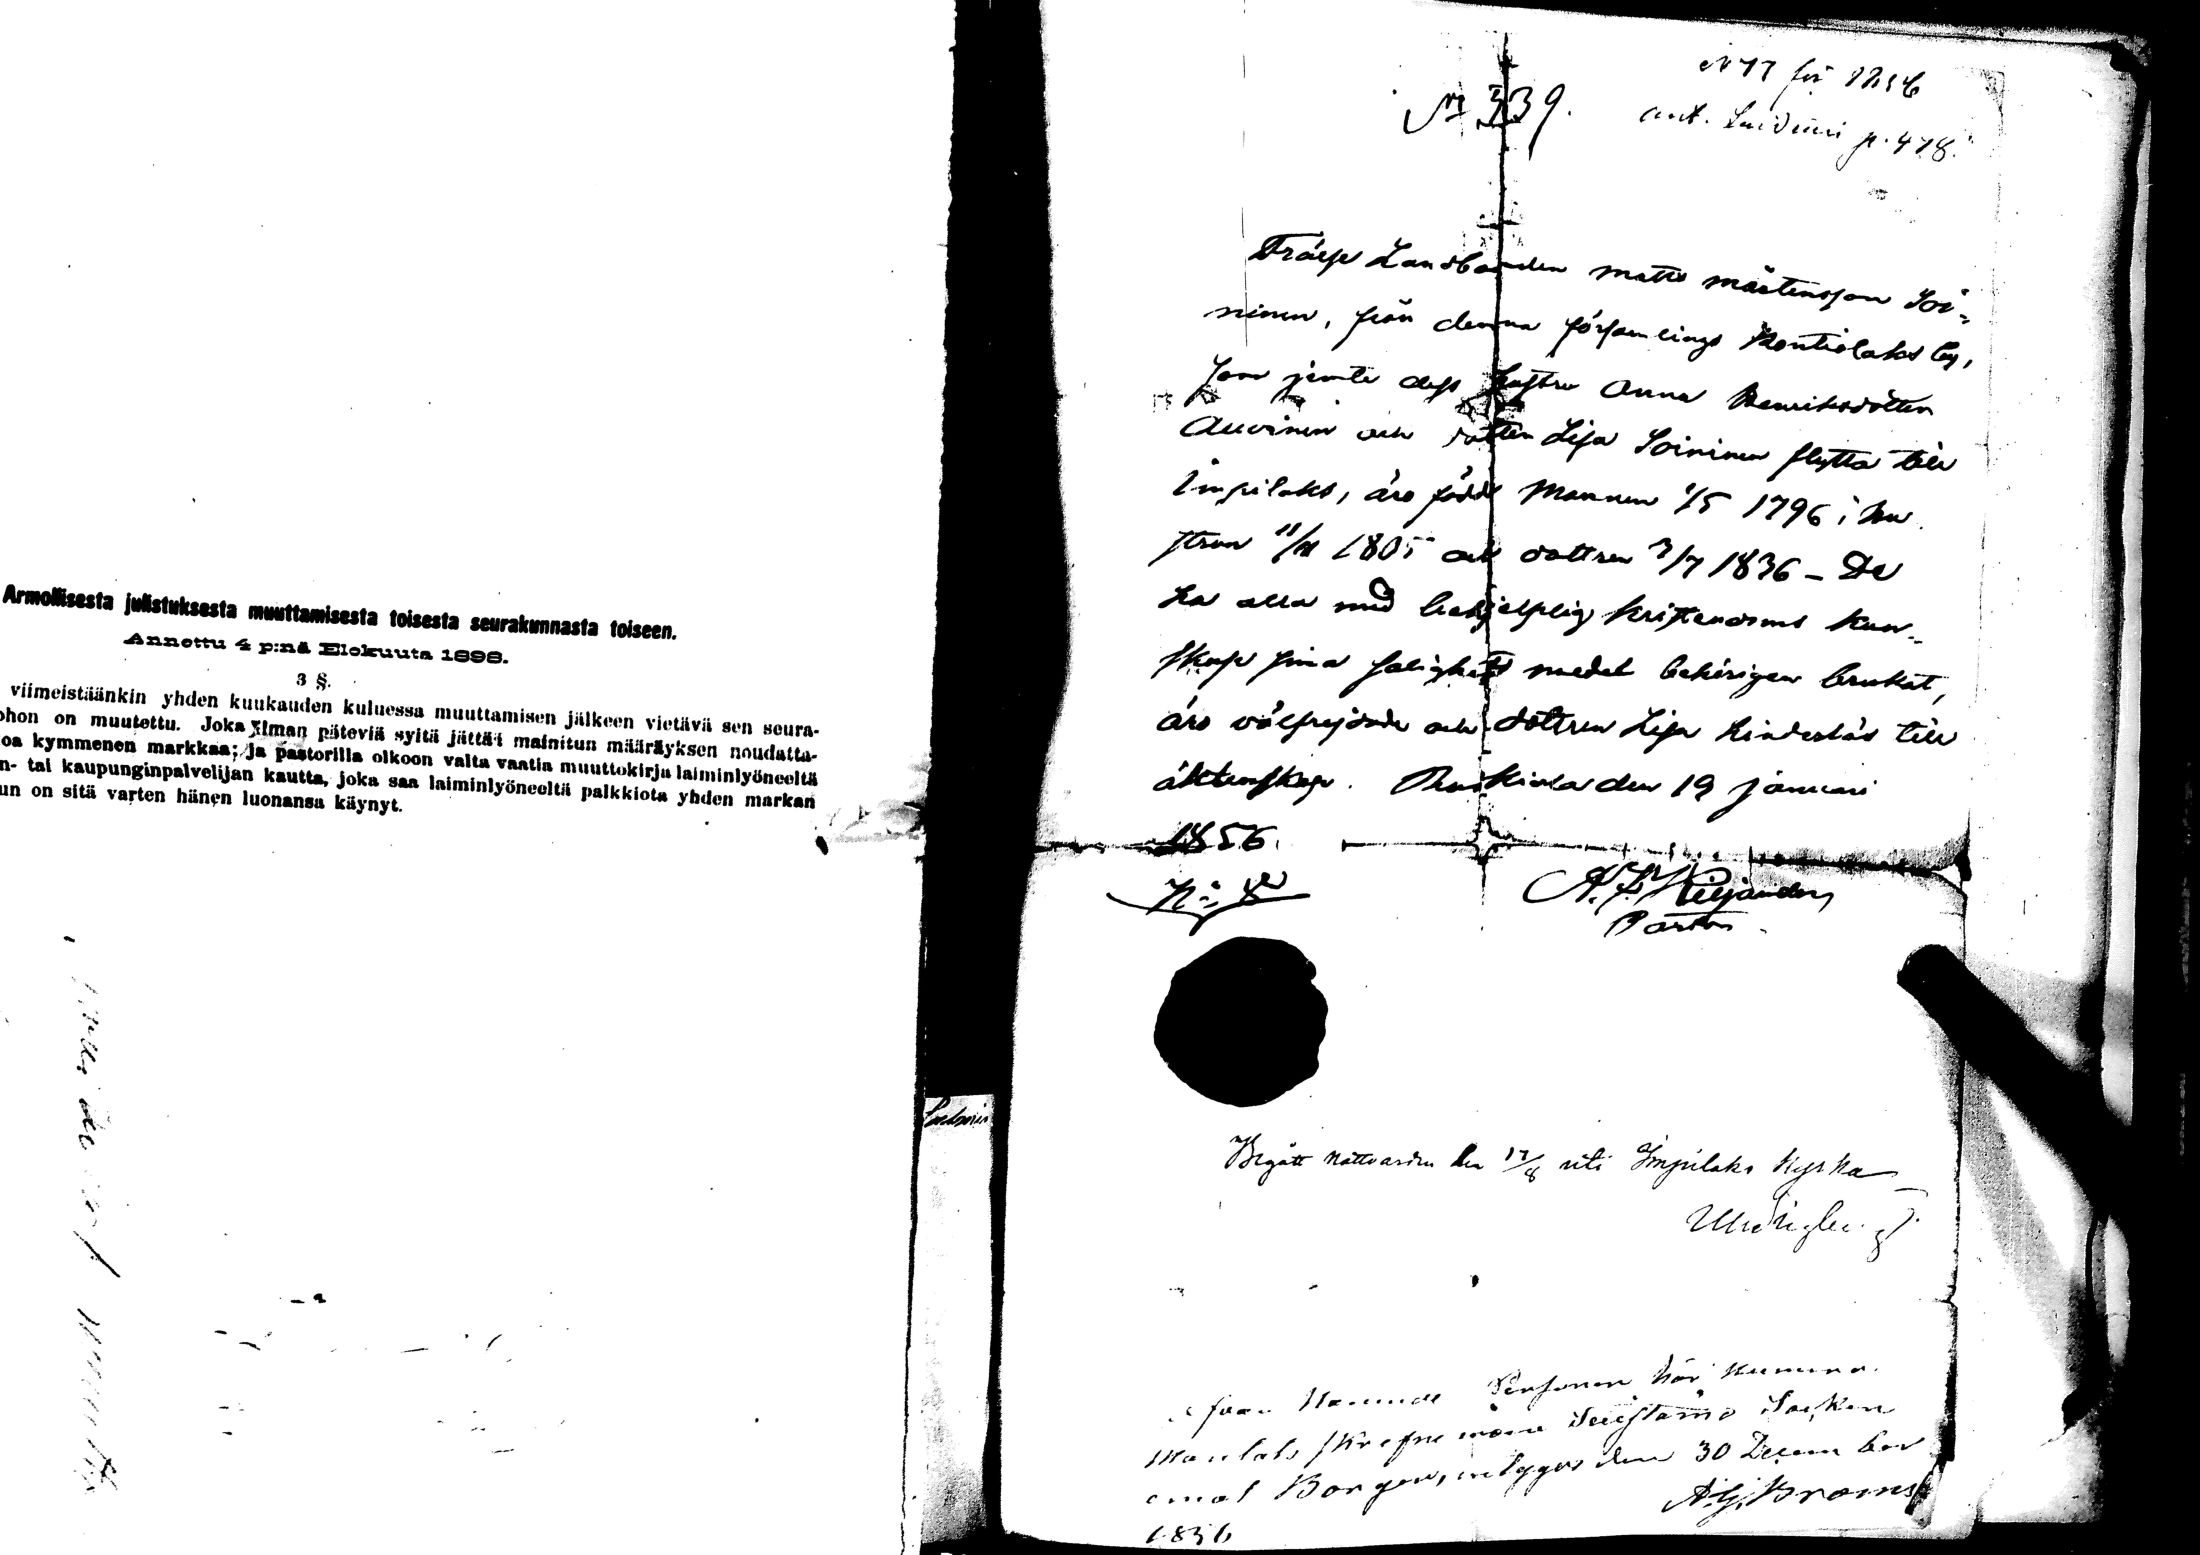 Armollisesta julistuksesta muuttamisesta toisesta seurakunnasta toiseen.
Annettu 4 p:nä Elokuuta 1898.
3 §.
viimeistäänkin yhden kuukauden kuluessa muuttamisen jälkeen vietävä sen seura-
ohon on muutettu. Joka ilman päteviä syitä jättäi mainitun määräyksen noudatta-
oa kymmenen markkaa; ja pastorilla olkoon valta vaatia muuttokirja laiminlyöneeltä
n- tai kaupunginpalvelijan kautta, joka saa laiminlyöneeltä palkkiota yhden markan
un on sitä varten hänen luonansa käynyt.
N 77 för 1856
ant. p. 478.
N 339.
Landbonden Matts Mårtensson Soi=
ninen, från denna församlings Kontiolaks by,
som jemte dess hustru Anna Henriksdotter
Auvinen och dotter Lisa Soininen flytta till
Impilaks, äro födde Mannen 1/5 1796; hu
strun 11/11 1805 och dottren 3/7 1836 – De
ha alla med behjelplig kristendoms kun-
skap sina salighets medel behörigen brukat,
äro välfrejdade och dottren Lisa hinderlös till
äktenskap. Ruskiala den 19 januari
1856.
N:o 8
Pastor
Begått nattvarden den 17/8 uti Impilaks Kyrka
Personer här
Mantals skrefne inom Suistamo Socken
Borgen, intygas den 30 December
1856